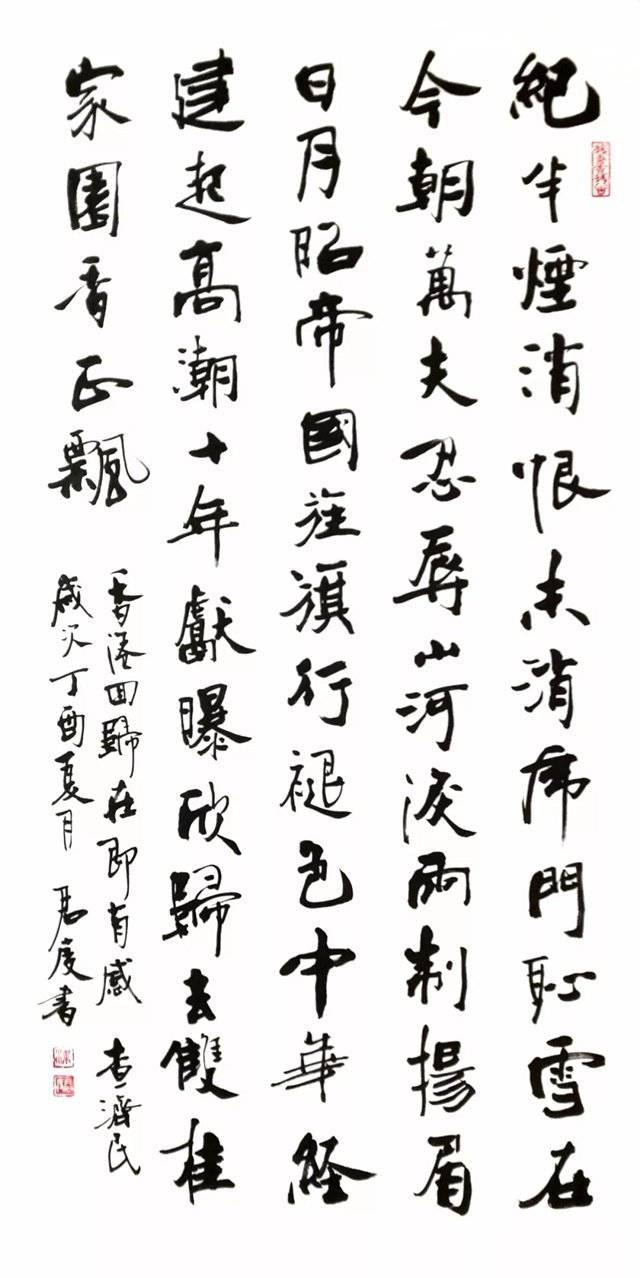 紀半煙消恨未消虎門恥雪在
今朝萬夫忍辱山河淚兩制揚眉
日月昭帝國旌旗行褪色中華經
建起高潮十年獻曝欣歸去雙桂
家園香正飄
香港回歸在即有感 查濟民
歲次丁酉夏月 君度書